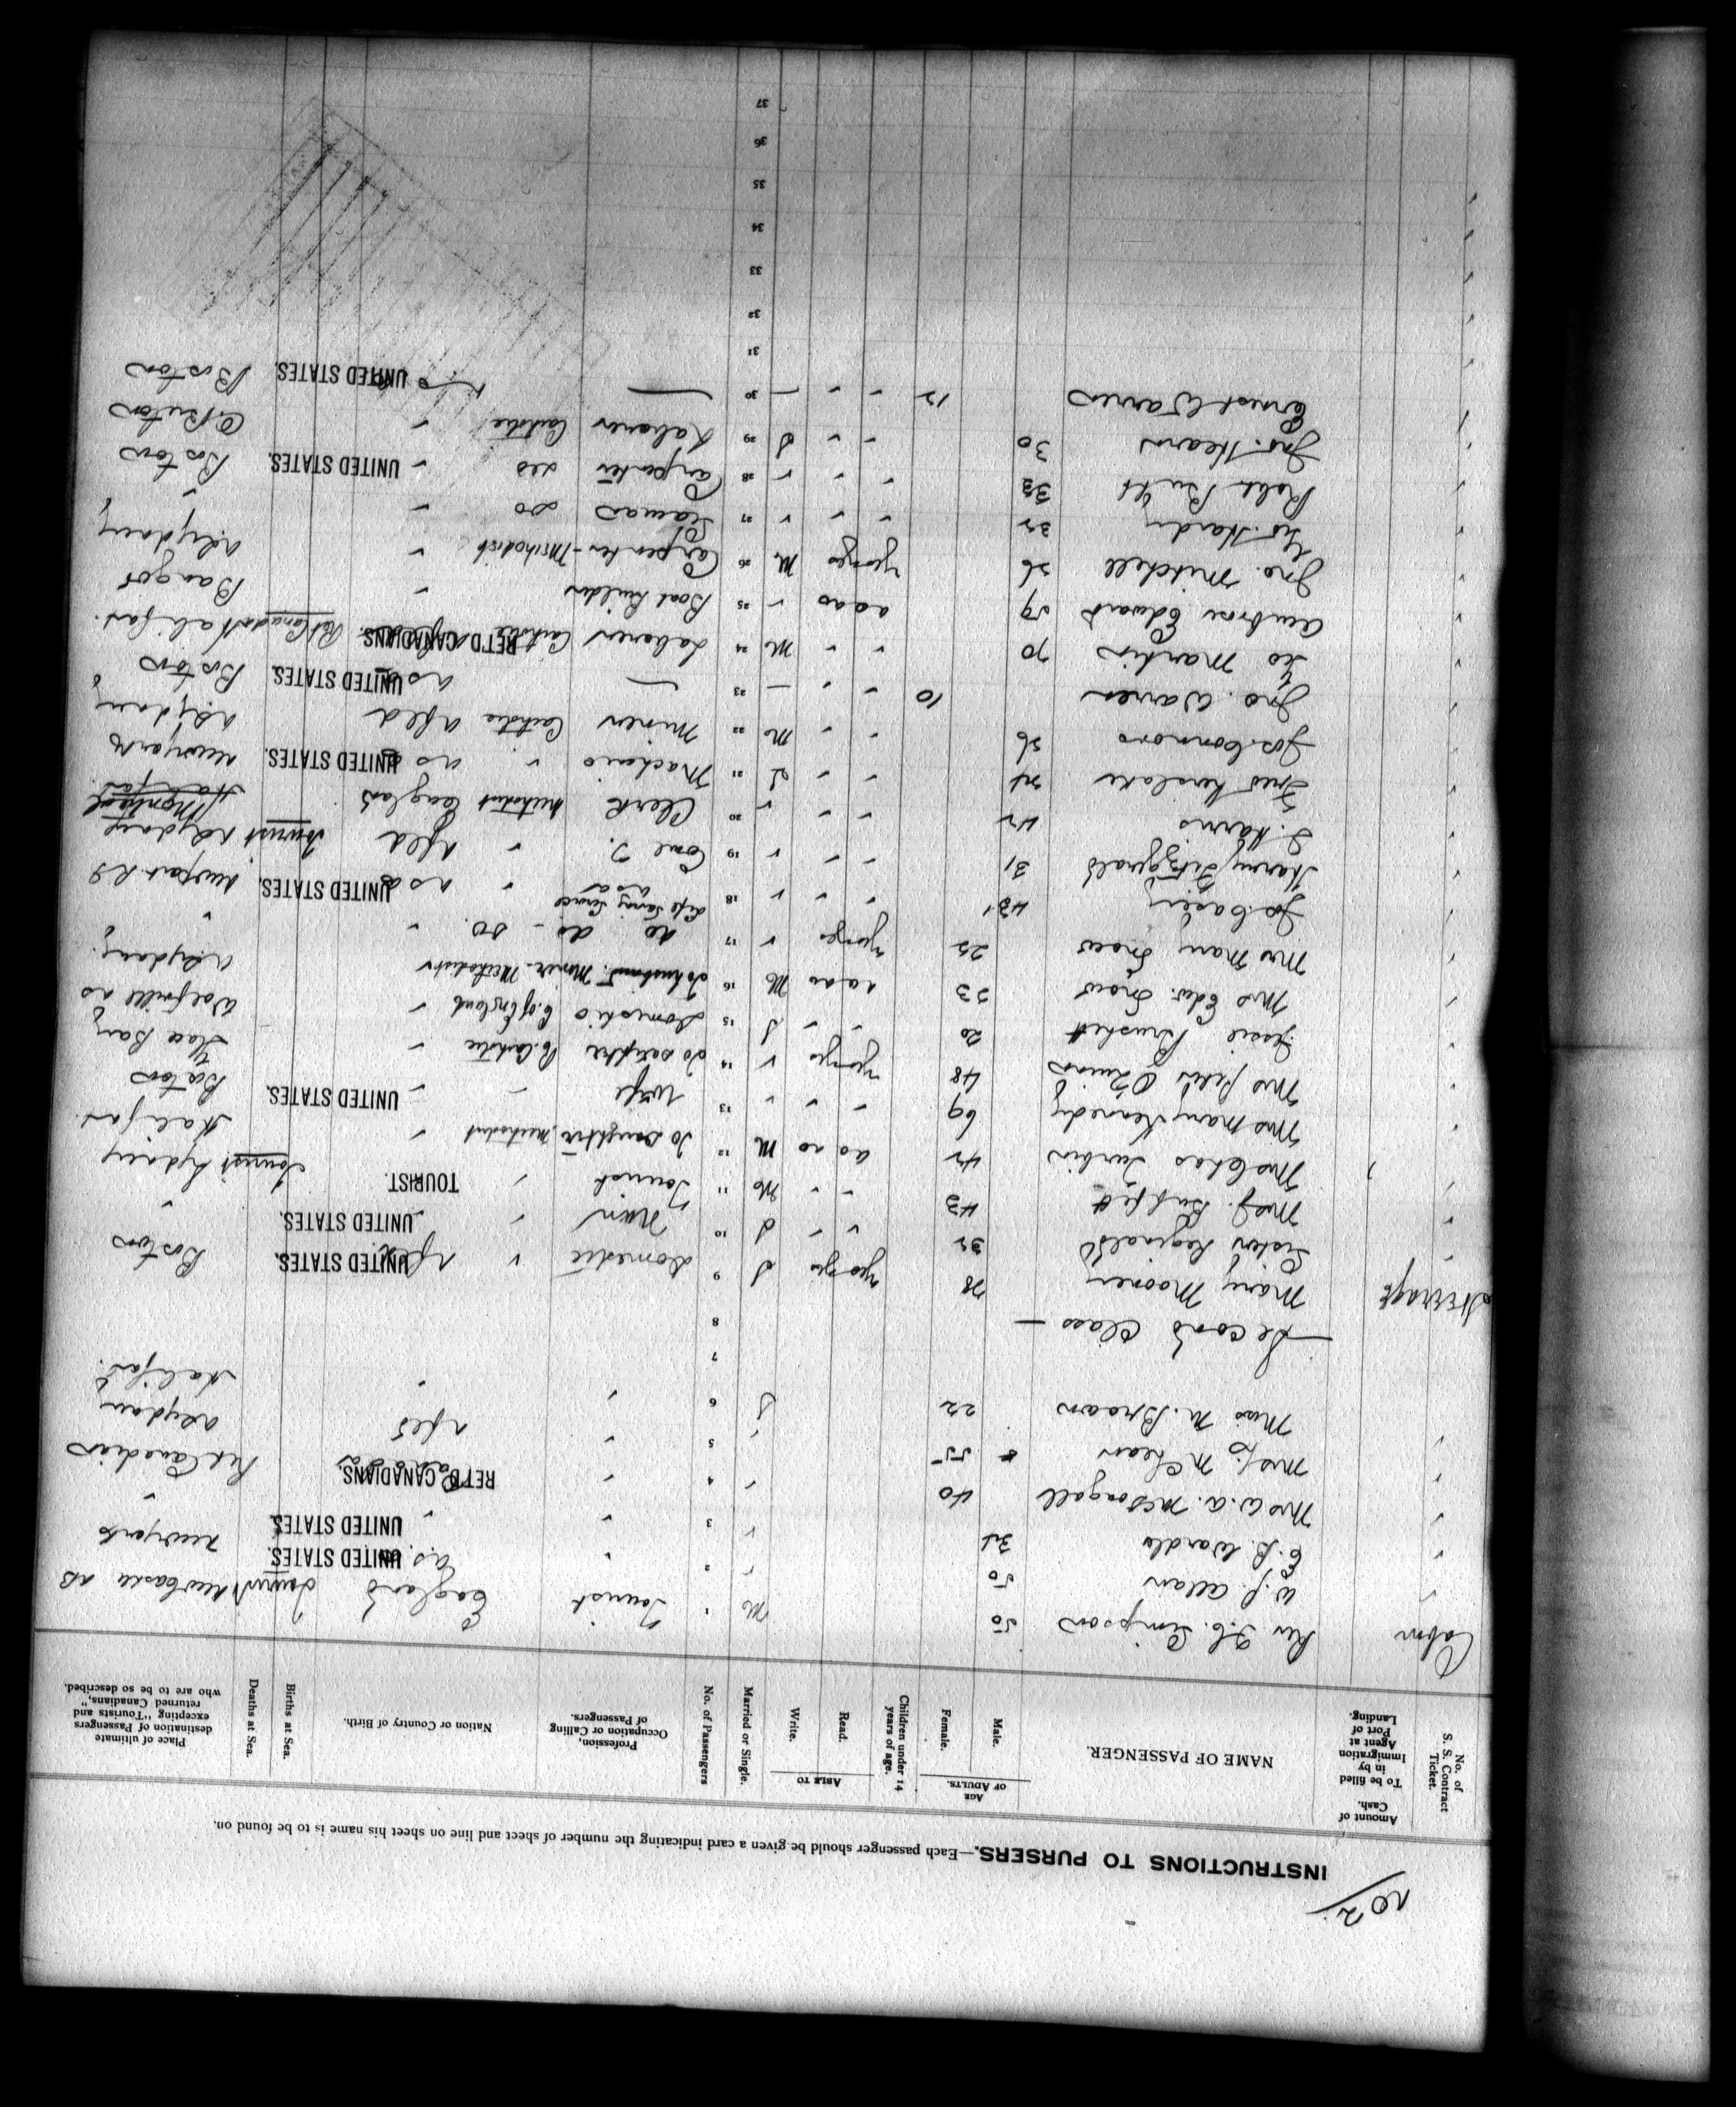 No 2
INSTRUCTIONS TO PURSERS.—Each passenger should be given a card indicating the number of sheet and line on sheet his name is to be found on.
No. of S. S. Contract Ticket.
Amount of Cash. To be filled in by Immigration Agent at Port of Landing.
NAME OF PASSENGER.
AGE OF ADULTS.
Male.
Female.
Children under 14 years of age.
ABLE TO
Read.
Write.
Married or Single.
No. of Passengers
Profession, Occupation or Calling of Passengers.
Nation or Country of Birth.
Births at Sea.
Deaths at Sea.
Place of ultimate destination of Passengers excepting "Tourists and returned Canadians," who are to be so described.
Cabin Rev F.C. Simpson 50 M 1 Tourist England Tourist Newcastle NB
W.J. Allan 50 " 2 " U.S. UNITED STATES. New York
E.B. Wardle 34 " 3 " " UNITED STATES. "
Mrs W.A. McDougall 40 " 4 " RET'D CANADIANS. Ret Canadian
Mrs J. McLean 55 " 5 " Nfld N Sydney
Miss M. Brown 22 S 6 " " Halifax
7
— Second Class — 8
Steerage Mary Mooney 28 yes yes S 9 Domestic " Nfld UNITED STATES. Boston
Sister Reginald 32 " " S 10 Nun " " UNITED STATES. "
Mrs J. Buffett 43 " " M 11 Tourist " TOURIST. Tourist Sydney
Mrs Chas Durbin 42 no no M 12 To Daughter, Methodist " Halifax
Mrs Mary Kennedy 69 " " " 13 Wife " " UNITED STATES. Boston
Mrs Peter O'Quinn 48 yes " 14 To Daughter R. Catholic " Glace Bay
Jessie Brushett 20 " " S 15 Domestic C. of England " Wolfville NS
Mrs Edw. Snow 23 no no M 16 To husband, Miner - Methodist " N Sydney
Mrs Mary Snow 25 yes " 17 do do - do. " "
Jos. Casey 43 " " " 18 Life Saving Service USA " USA UNITED STATES. Newport R I
Harry Fitzgerald 31 " " " 19 Coml T. " Nfld Tourist N Sydney
S. Harris 42 " " " 20 Clerk Methodist England Halifax Montreal
Fred Kerslake 24 " " S 21 Machinic " USA UNITED STATES. New York
Jos. Connors 26 " " M 22 Miner Catholic Nfld N Sydney
Jno. Warren 10 " " — 23 — USA UNITED STATES. Boston
Geo Martin 70 " " M 24 Laborer Catholic RET'D CANADIANS. Ret Canadian Halifax.
Ambrose Edward 59 no no " 25 Boat Builder " Bangor
Jno. Mitchell 26 yes yes M 26 Carpenter - Methodist " N Sydney
Geo. Hardy 32 " " " 27 Seaman do " "
Robt Butt 33 " " " 28 Carpenter do " UNITED STATES. Boston
Jno. Hearn 30 " " S 29 Laborer Catholic " C. Breton
Ernest Warren 12 " " — 30 — UNITED STATES. Boston
31
32
33
34
35
36
37